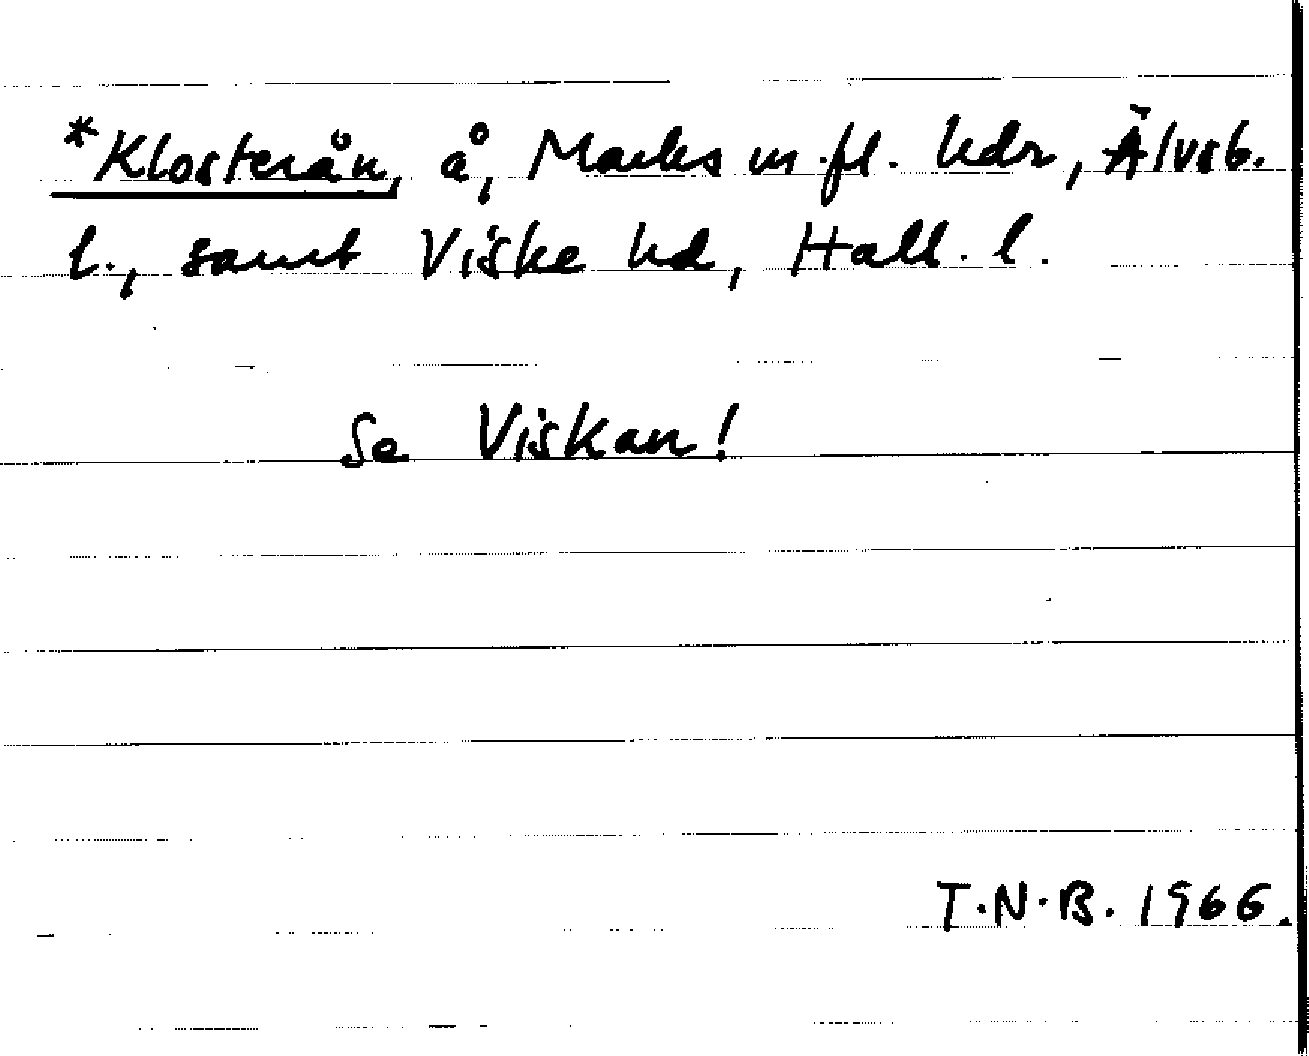 *Klosterån, å, Marks m.fl. hdr, Älvsb.
l., samt Viske hd, Hall. l.
Se Viskan!
T.N.B. 1966.